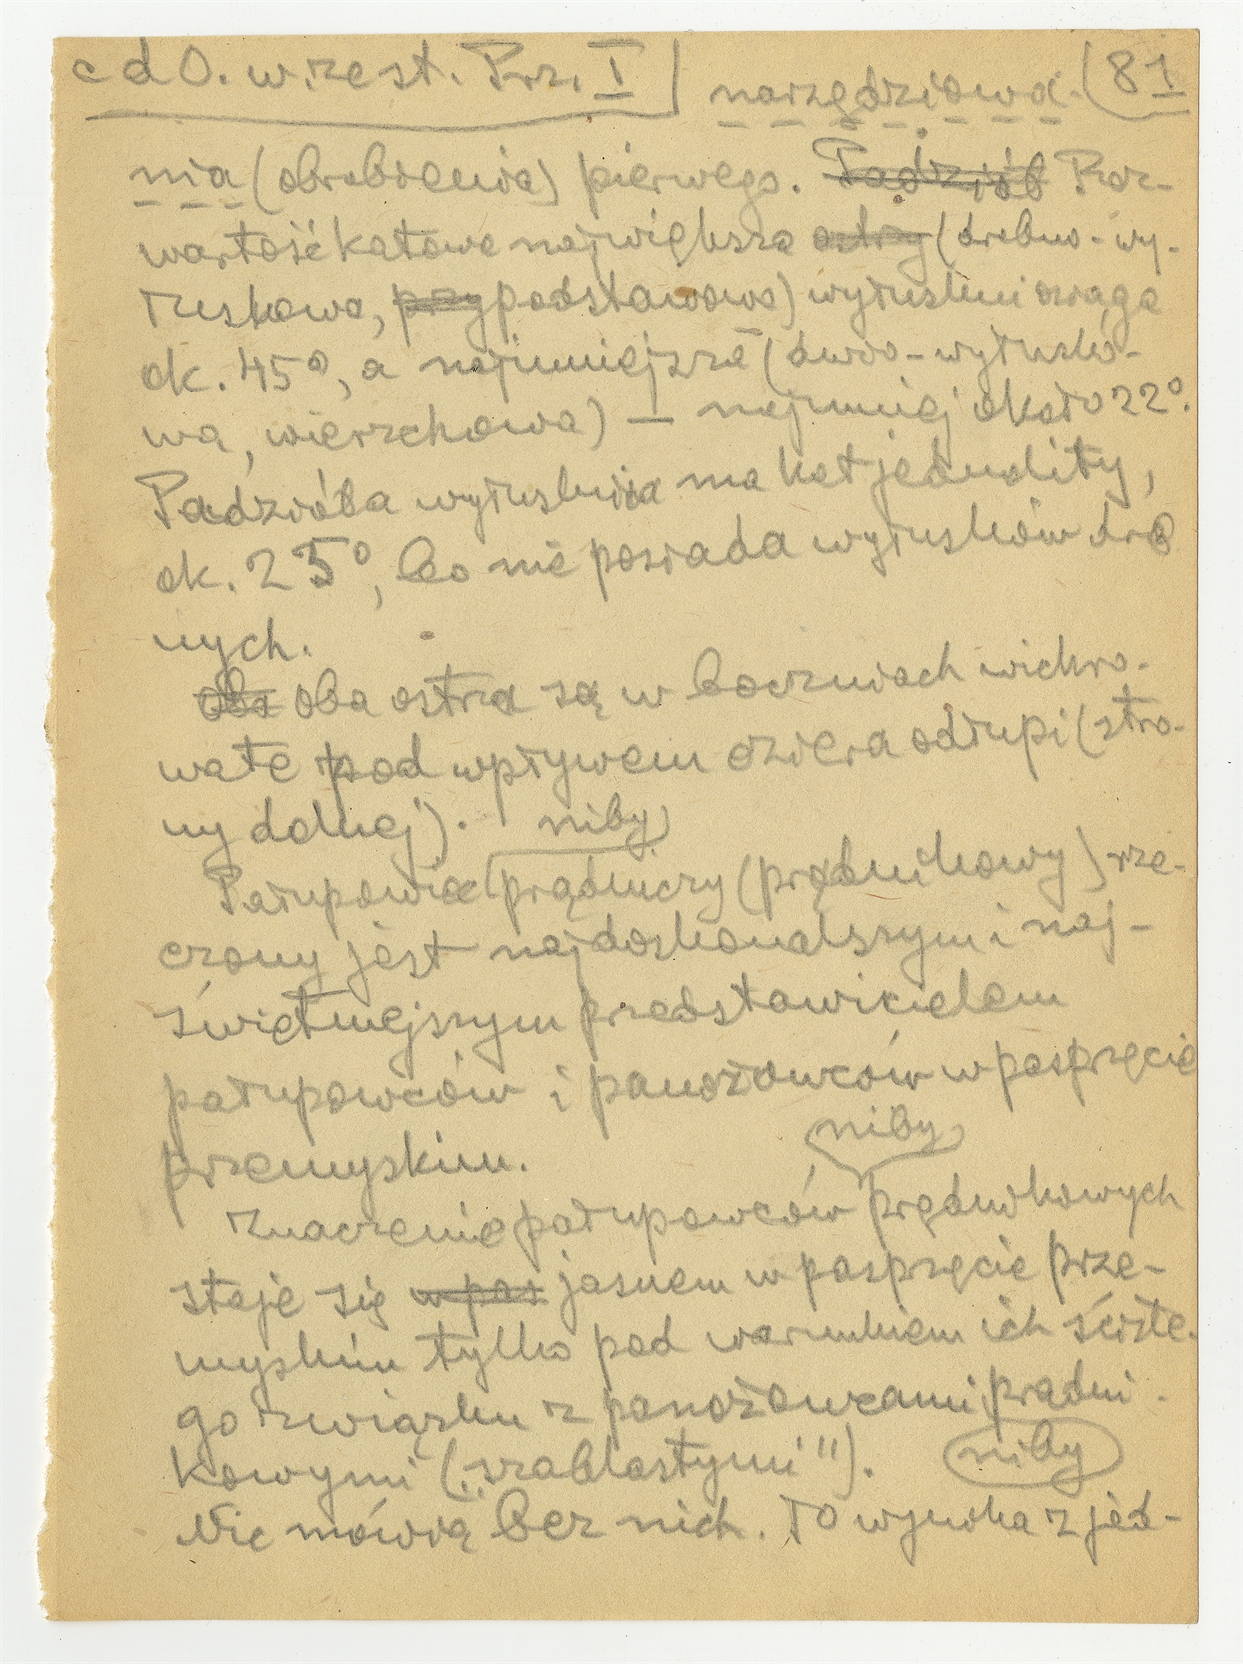 c d O. w. zest. Prz. I narzędziowa- (81
nia (obrobienia) pierwego. Padziób Roz-
wartość kątowa największa ostrzy (drobno-wy-
łuskowa, przypodstawowa) wyłuskni osiąga
ok. 45°, a najmniejsza (dwro-wyłusko-
wa, wierzchowa) — najmniej około 22°.
Padzióba wyłusknia ma kąt jednolity,
ok. 25°, bo nie posiada wyłusków dro
nych.
oba oba ostrza są w boczniach wichro-
wate pod wpływem dzieła odłupi (stro-
ny dolnej). niby
Patupowiec prądniczy (prądnikowy) rze-
czony jest najdoskonalszym i naj-
świetniejszym przedstawicielem
patupowców i panożowców w pasprzęcie
przemyskim. niby
Znaczenie patupowców prądnikowych
staje się w pas jasnem w pasprzęcie prze-
myskim tylko pod warunkiem ich ściśle-
go związku z panożowcami prądni-
kowymi („szablastymi"). niby
Nic mówią bez nich. To wynika z jed-